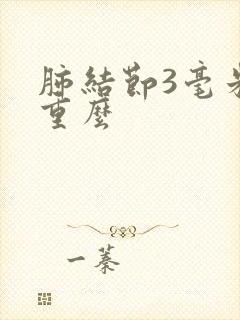 肺結節3毫米
重麼
一蓁